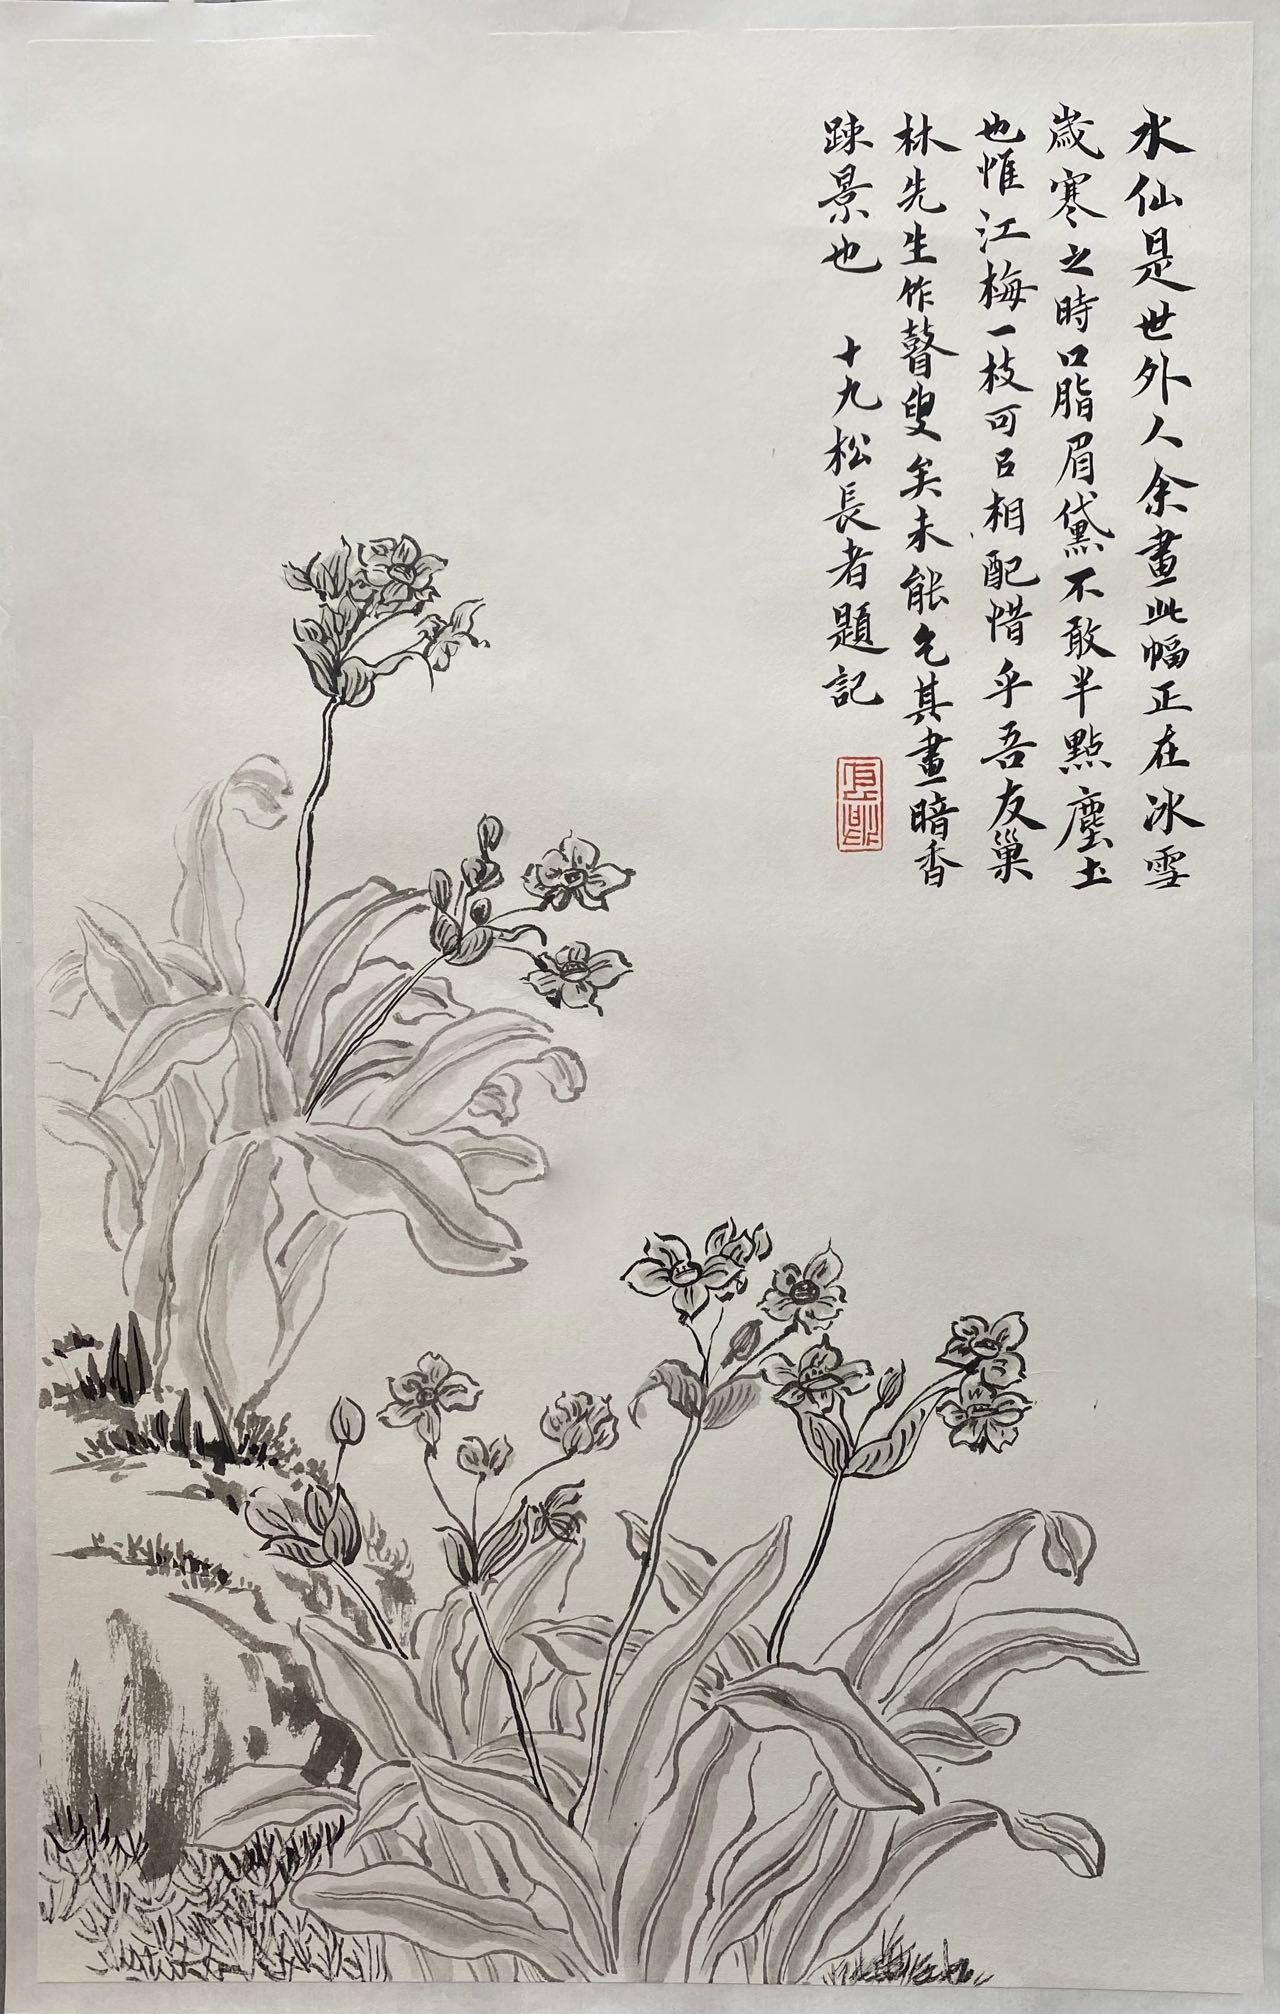 水仙是世外人余畫此幅正在冰雪
歲寒之時口脂眉黛不敢半點塵土
也惟江梅一枝可㠯相配惜乎吾友巢
林先生作瞽叟矣未能乞其畫暗香
疎景也 十九松長者題記